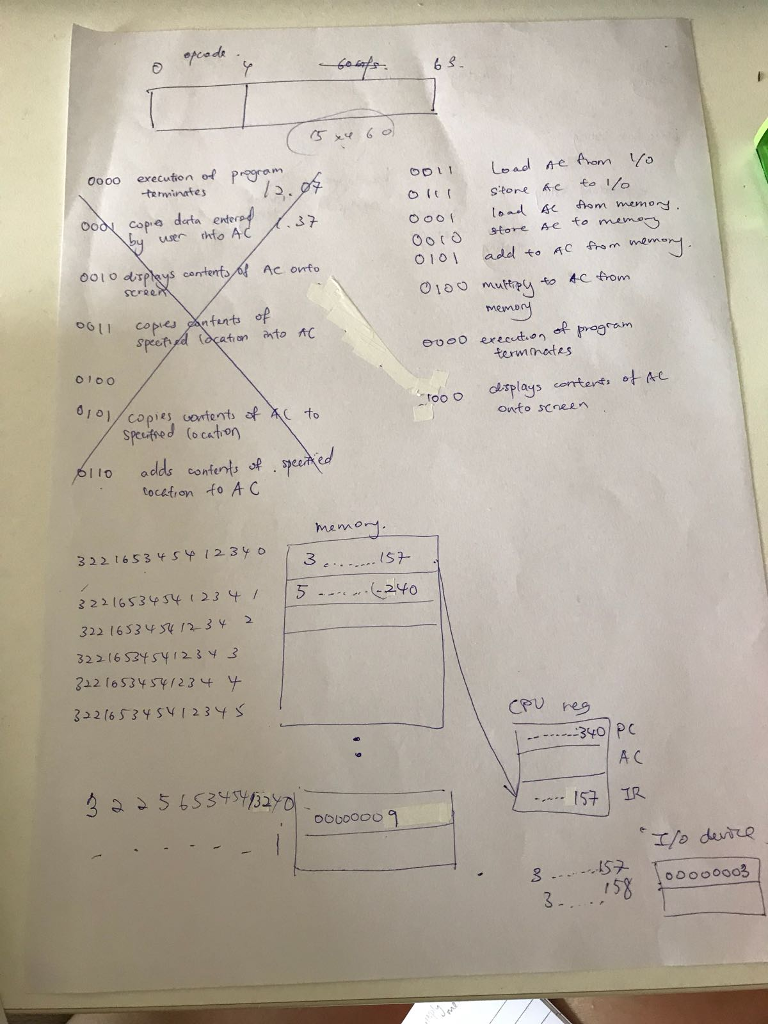 opcode.
0 4 60 bits. 63.
15 x 4 60
0000 execution of program
terminates
12.07
0001 copies data entered
by user into AC
1.37
0010 displays contents of AC onto
screen
0011 copies contents of
specified location into AC
0100
0101 copies contents of AC to
specified location
0110 adds contents of specified
location to AC
0011 Load AC from I/O
0111 store AC to I/O
0001 load AC from memory.
0010 store AC to memory
0101 add to AC from memory.
0100 multiply to AC from
memory
0000 execution of program
terminates
1000 displays contents of AC
onto screen.
memory.
322165345412340 3........157
322165345412341 5.......(-240
322165345412342
322165345412343
322165345412344
322165345412345
CPU reg
.......340 PC
AC
.....157 IR
00000009
- . . . . . - 1
I/O device
3......157 00000003
3-....158